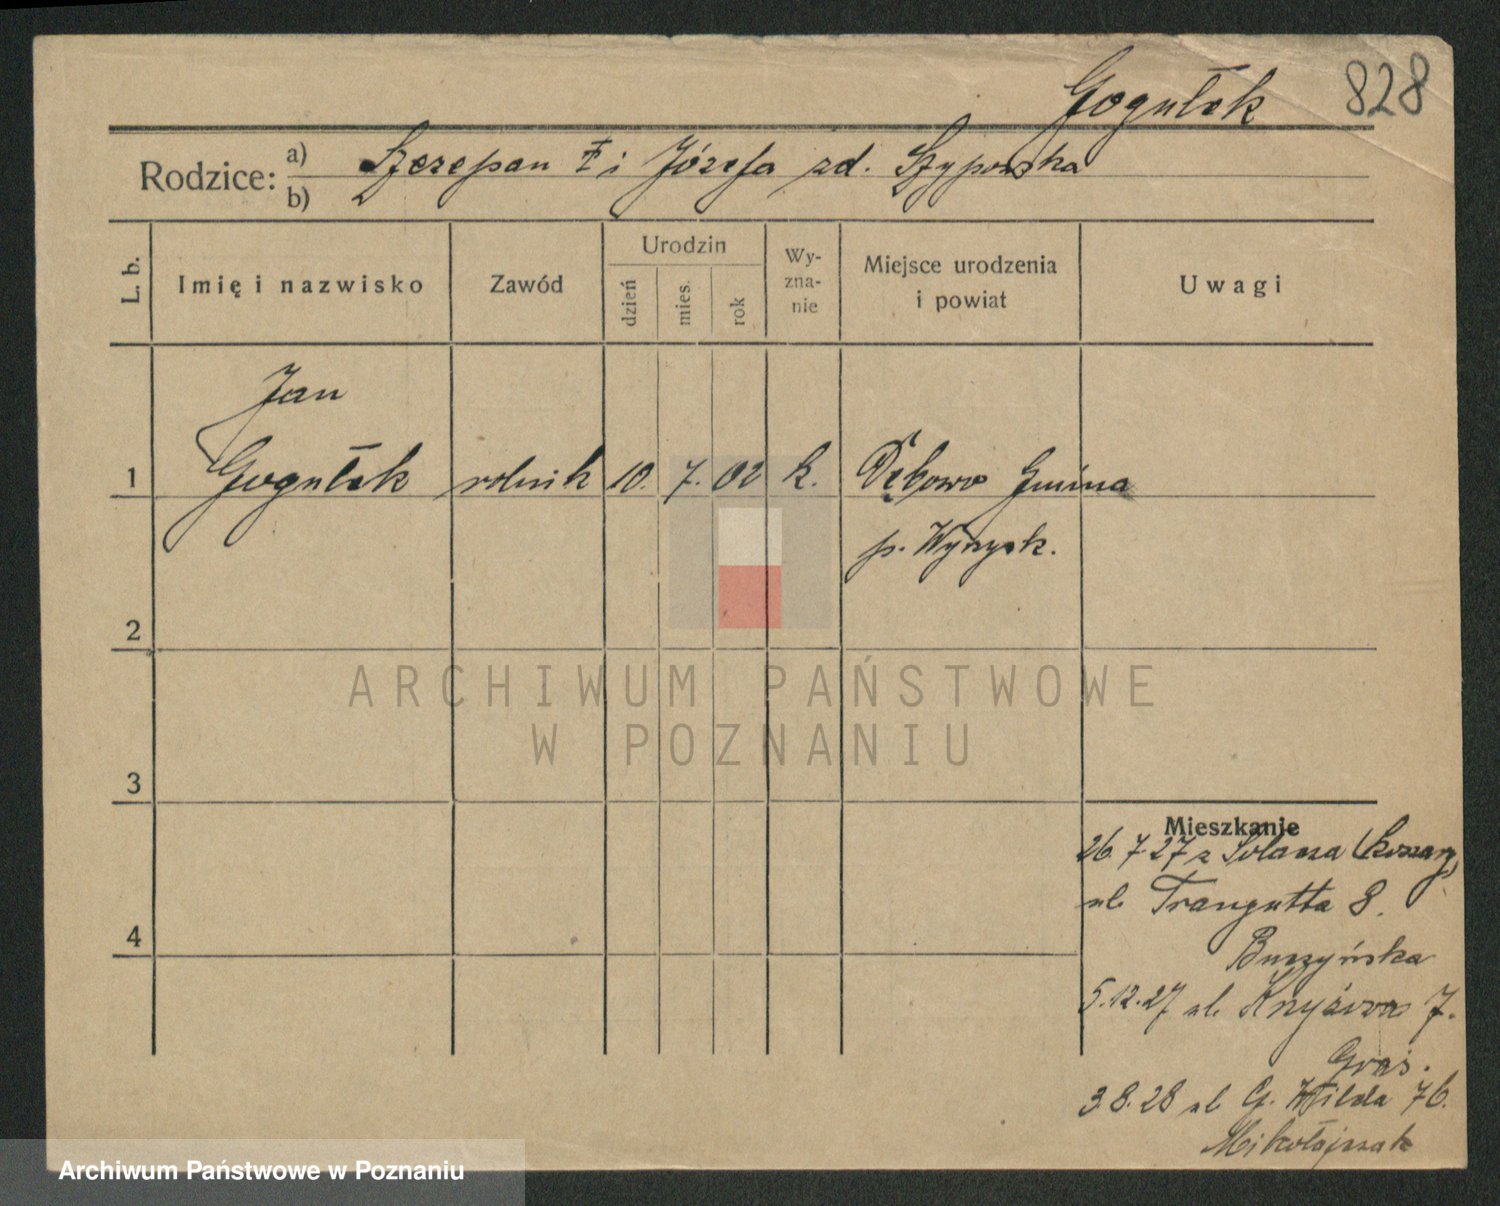 Gogułek 828
Rodzice: a) Szczepan i Józefa zd. Szyperska
b)
L. b. Imię i nazwisko Zawód Urodzin dzień mies. rok Wy-zna-nie Miejsce urodzenia i powiat Uwagi
Jan
1 Gogułek rolnik 10. 7. 02 k. Dębowo Gmina
p. Wyrzysk.
2
ARCHIWUM PAŃSTWOWE
W POZNANIU
3
Mieszkanie
26.7.27 z Solacza (koszary)
ul. Traugutta 8.
4
Buszyńska
5.12.27 ul. 7.
3.8.28 ul. G. Wilda 76.
Mikołajczak
Archiwum Państwowe w Poznaniu